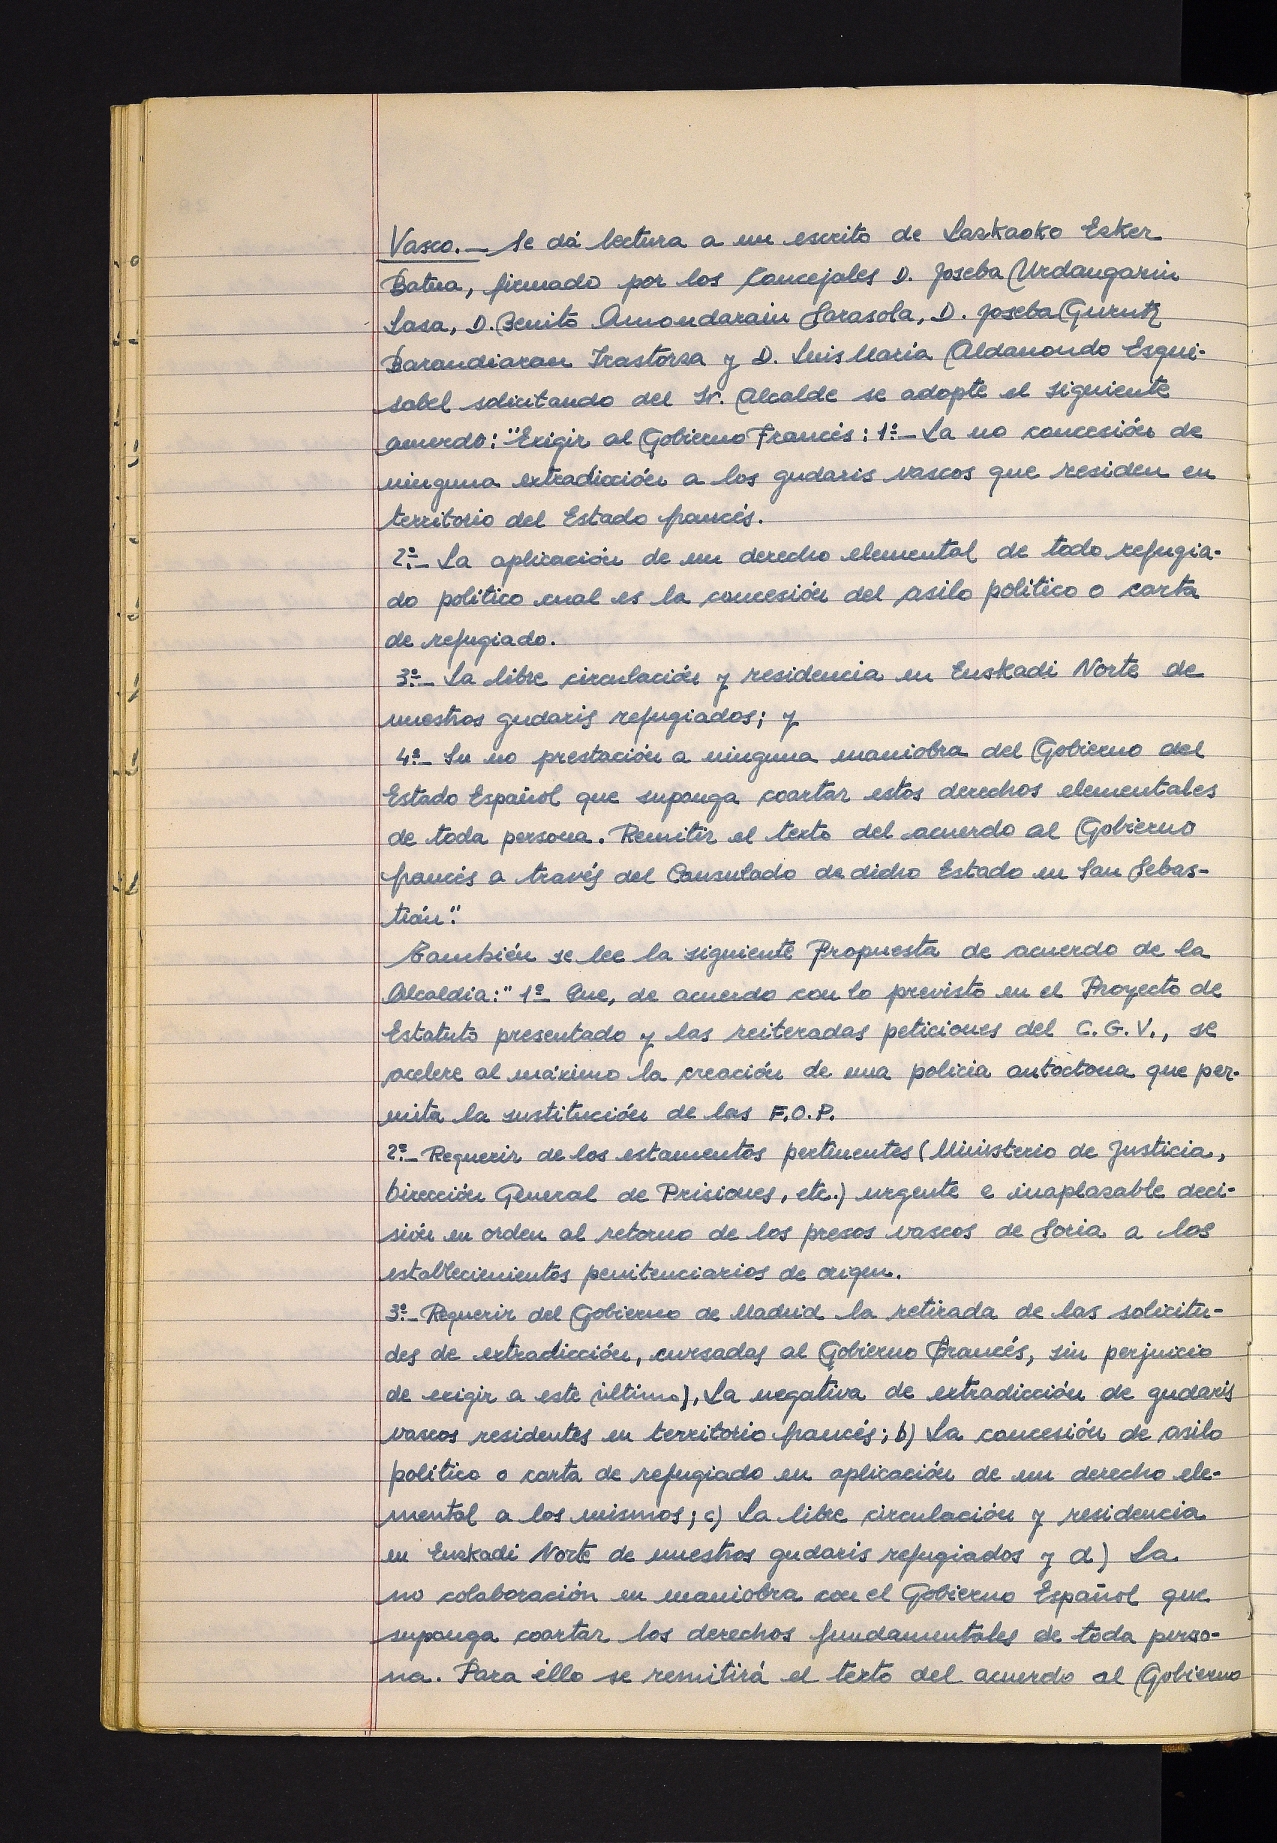 Vasco.- Se dá lectura a un escrito de Lazkaoko Esker
Batua, firmado por los Concejales D. Joseba Urdangarin
Lasa, D. Benito Amondarain Sarasola, D. Joseba Gurutz
Barandiaran Irastorza y D. Luis Maria Aldanondo Esqui-
sabel solicitando del Sr. Alcalde se adopte el siguiente
acuerdo: "Exigir al Gobierno Francés: 1º- La no concesión de
ninguna extradicción a los gudaris vascos que residen en
territorio del Estado francés.
2º- La aplicación de un derecho elemental de todo refugia-
do político cual es la concesión del asilo político o carta
de refugiado.
3º- La libre circulación y residencia en Euskadi Norte de
nuestros gudaris refugiados; y
4º- Su no prestación a ninguna maniobra del Gobierno del
Estado Español que suponga coartar estos derechos elementales
de toda persona. Remitir el texto del acuerdo al Gobierno
francés a través del Consulado de dicho Estado en San Sebas-
tián."
También se lee la siguiente Propuesta de acuerdo de la
Alcaldia: " 1º- Que, de acuerdo con lo previsto en el Proyecto de
Estatuto presentado y las reiteradas peticiones del C.G.V., se
acelere al máximo la creación de una policia autóctona que per-
mita la sustitución de las F.O.P.
2º- Requerir de los estamentos pertinentes (Ministerio de Justicia,
Dirección General de Prisiones, etc.) urgente e inaplazable deci-
sión en orden al retorno de los presos vascos de Soria a los
establecimientos penitenciarios de origen.
3º- Requerir del Gobierno de Madrid la retirada de las solicitu-
des de extradicción, cursadas al Gobierno Francés, sin perjuicio
de exigir a este último), La negativa de extradicción de gudaris
vascos residentes en territorio francés; b) La concesión de asilo
político o carta de refugiado en aplicación de un derecho ele-
mental a los mismos; c) La libre circulación y residencia
en Euzkadi Norte de nuestros gudaris refugiados y d) La
no colaboración en maniobra con el Gobierno Español que
suponga coartar los derechos fundamentales de toda perso-
na. Para éllo se remitirá el texto del acuerdo al Gobierno